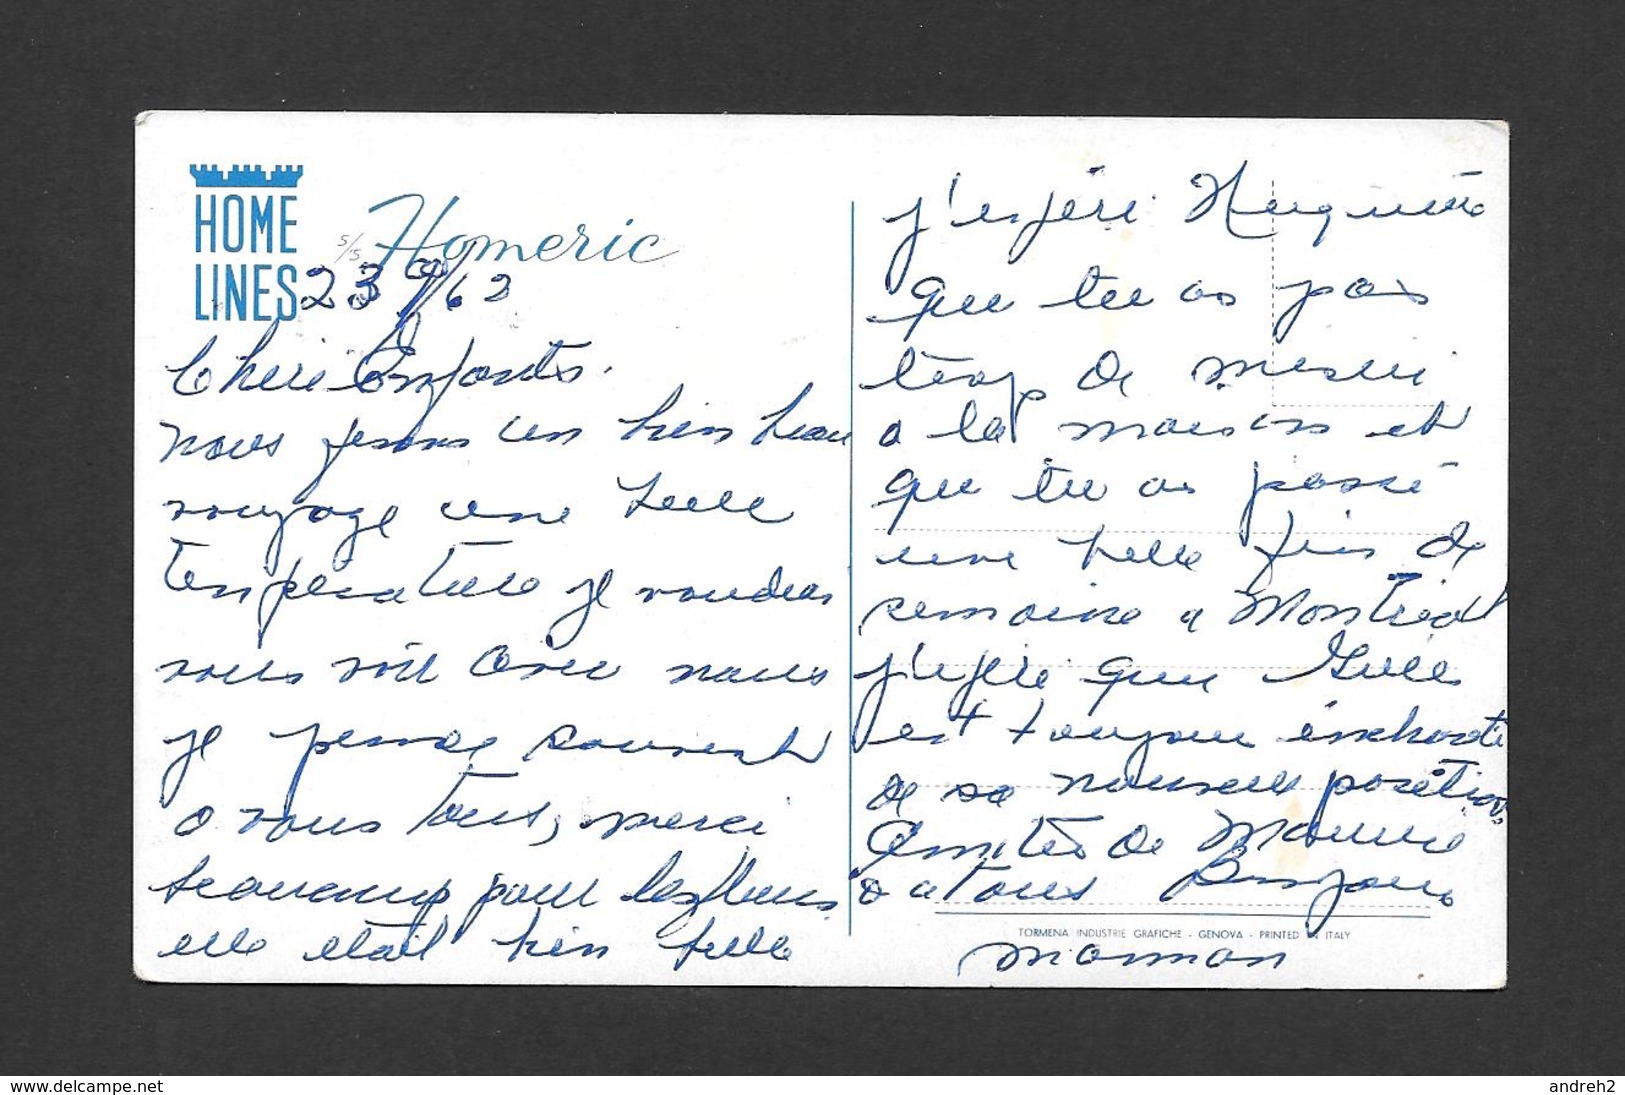 HOME
LINES
S/S Homeric
23 9/62
Chere Enfants.
nous fesons un bien beau
voyage une belle
temperature je voudrais
vous voir avec nous
je pense souvent
a vous tous, merci
beaucoup pour les fleurs
elle etait bien belle
j'espère Huguette
que tu as pas
trop de misere
a la maison et
que tu as passé
une belle fin de
semaine a Montreal
j'espere que
est toujours enchanté
de sa nouvelle position
Amitiés de
a tous Bonjour
TORMENA INDUSTRIE GRAFICHE - GENOVA - PRINTED IN ITALY
maman
www.delcampe.net
andreh2